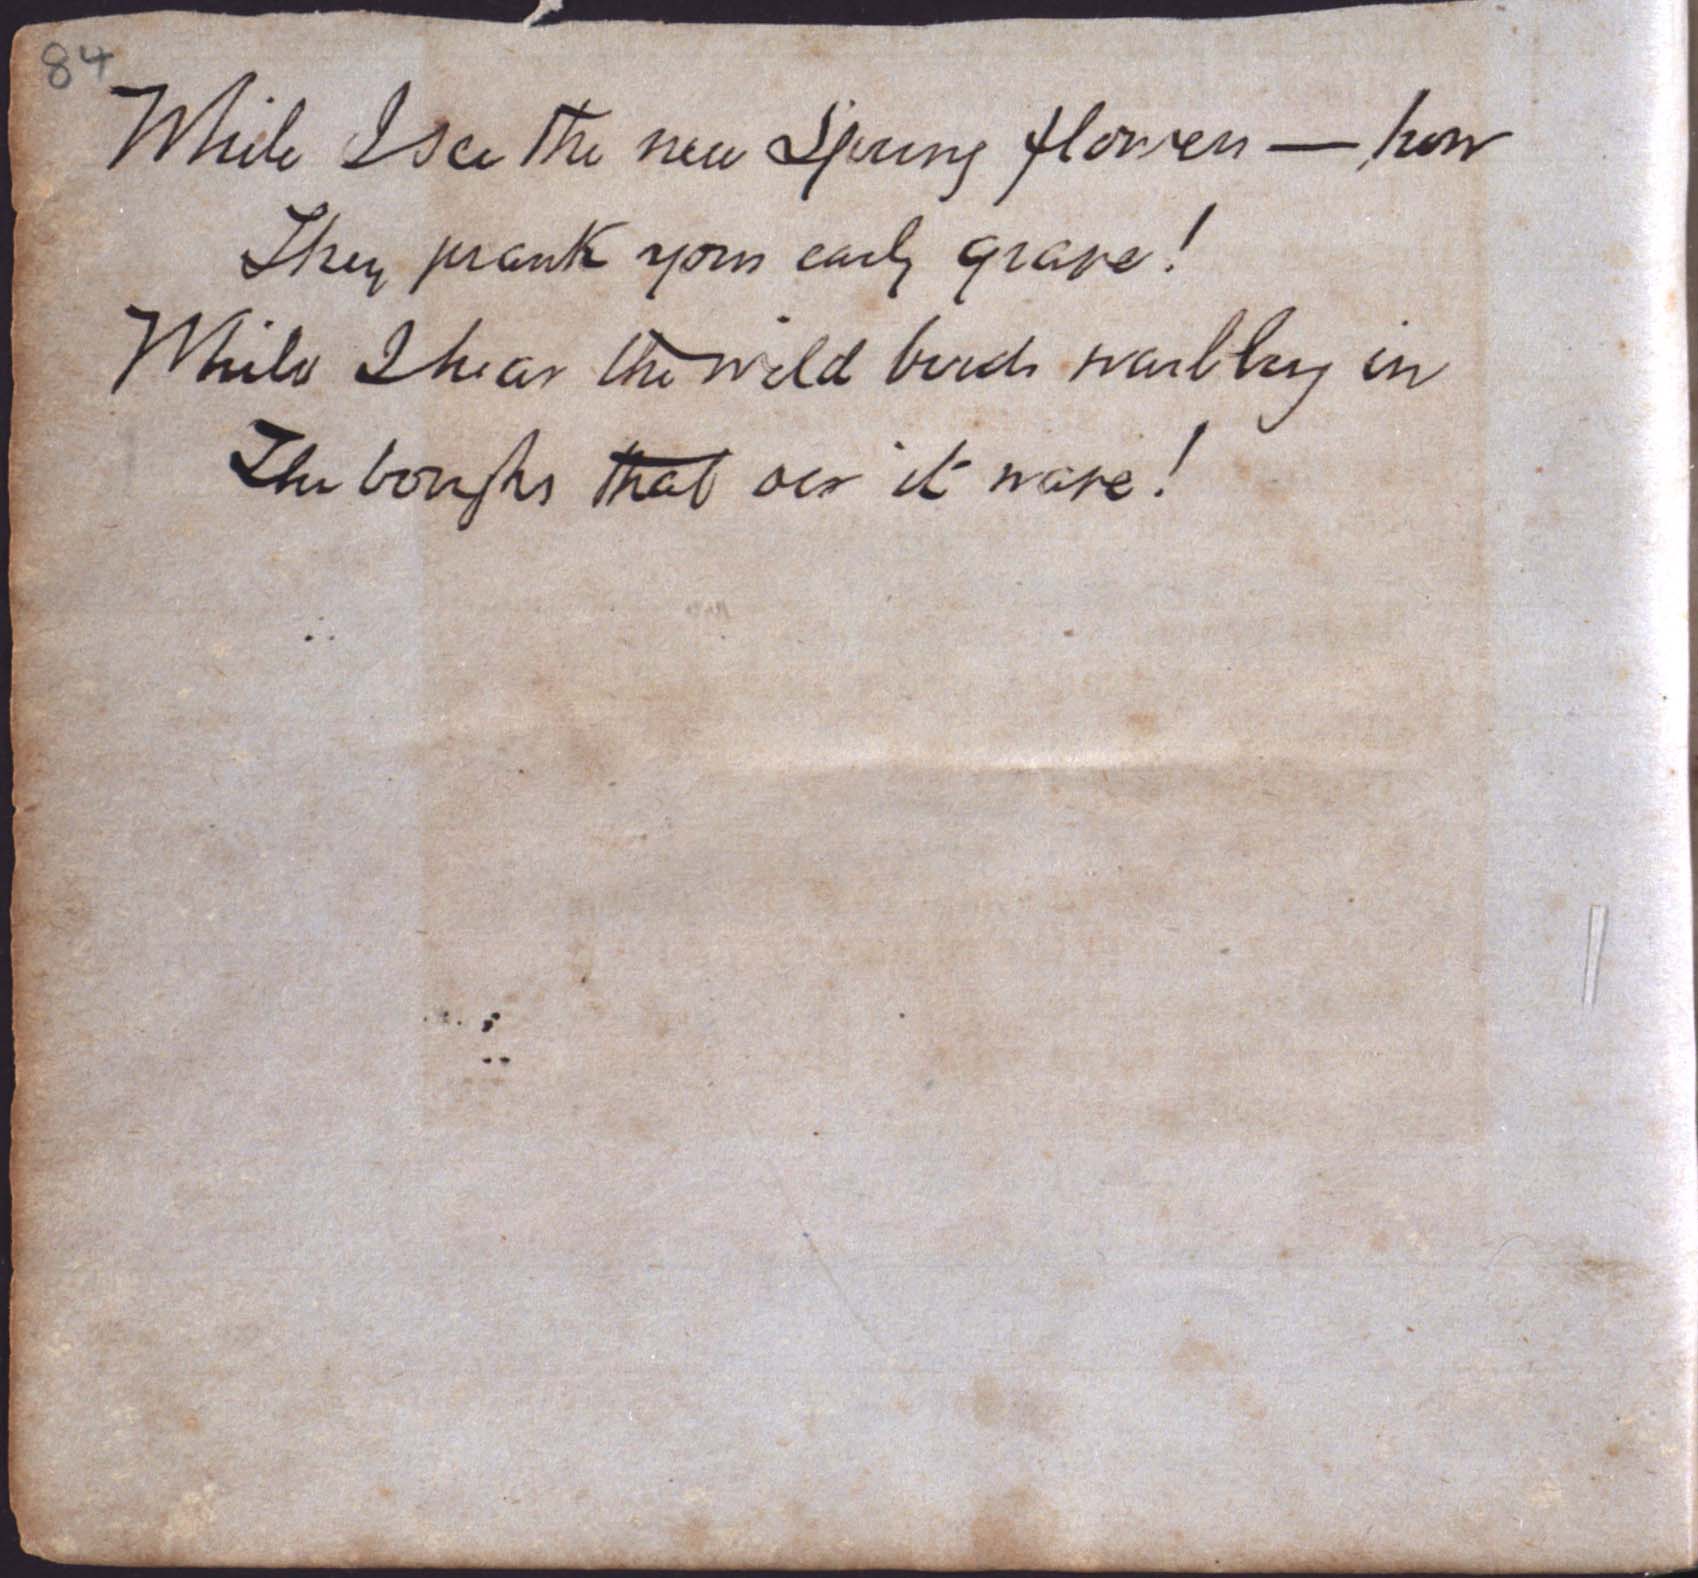 84
While I see the new Spring flowers — how
They prank your early grave!
While I hear the wild birds warbling in
The boughs that oer it wave!